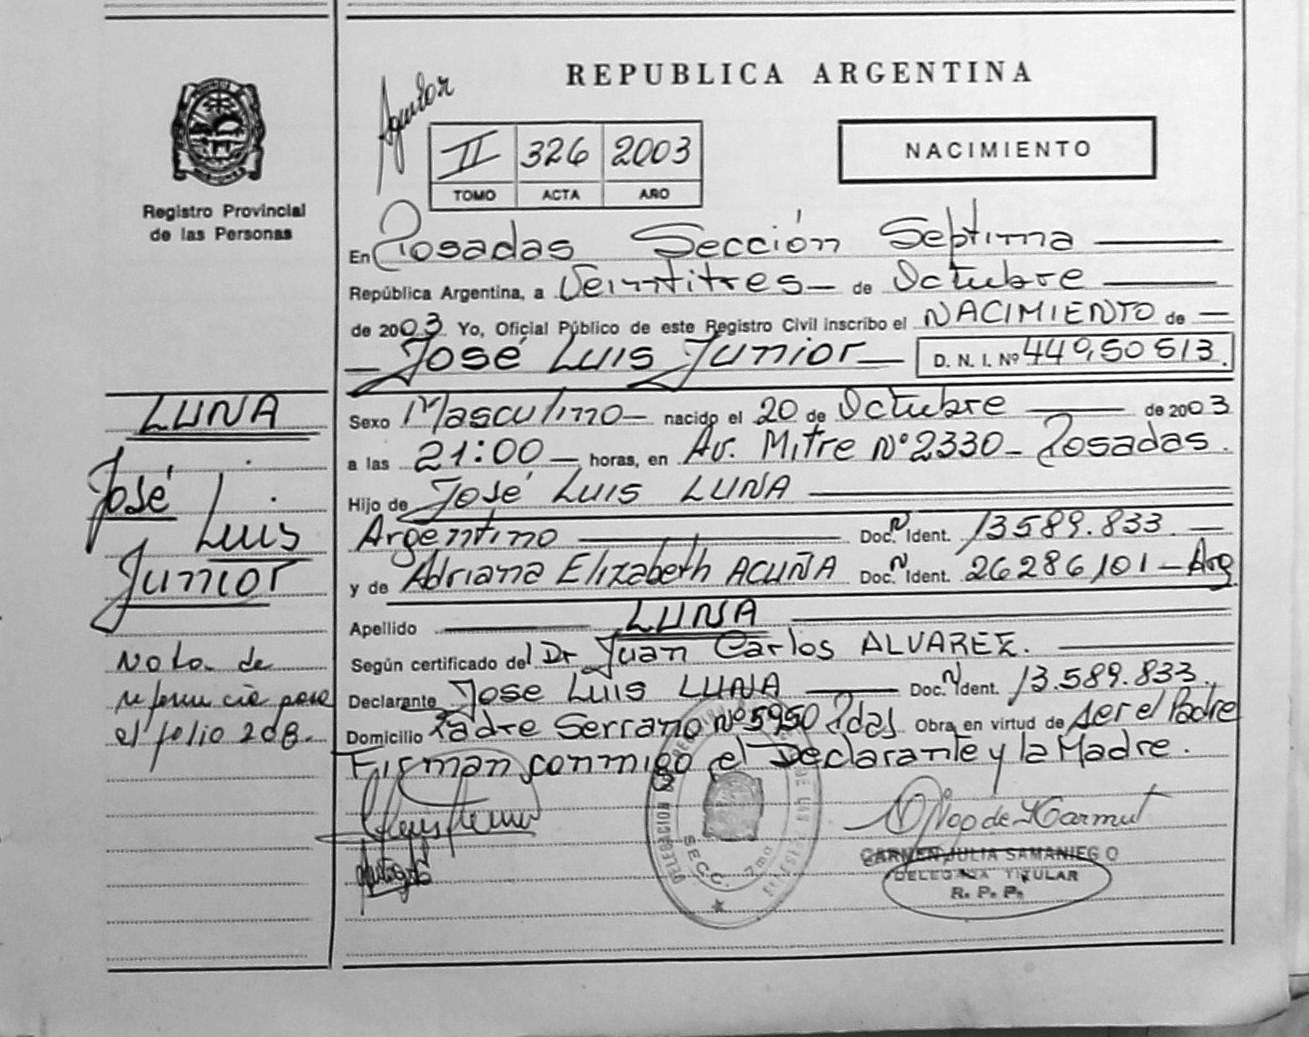 REPUBLICA ARGENTINA
Aguilar
II 326 2003
TOMO ACTA AÑO
NACIMIENTO
Registro Provincial
de las Personas
En Posadas Sección Septima
República Argentina, a Veintitres de Octubre
de 2003 Yo, Oficial Público de este Registro Civil inscribo el NACIMIENTO de
José Luis Junior D. N. I. Nº 44950513
Sexo Masculino nacido el 20 de Octubre de 2003
a las 21:00 horas, en Av. Mitre Nº 2330 - Posadas.
Hijo de José Luis LUNA
Argentino Doc. Ident. 13.589.833
y de Adriana Elizabeth ACUÑA Doc. Ident. 26286101 - Arg
Apellido LUNA
Según certificado del Dr Juan Carlos ALVAREZ.
Declarante Jose Luis LUNA Doc. Ident. 13.589.833.
Domicilio Padre Serrano Nº 5950 Pdas. Obra en virtud de ser el Padre
Firman conmigo el Declarante y la Madre.
LUNA
José
Luis
Junior
Nota de
referencia para
el folio 208.-
DELEGACION
SECC. 7ma
CARMEN JULIA SAMANIEGO
DELEGADA TITULAR
R. P. P.